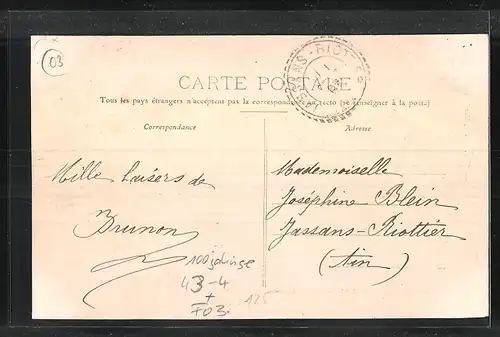 03
JASSANS-RIOTTIER
CARTE POSTALE
Tous les pays étrangers n'acceptent pas la correspondance au recto (se renseigner à la poste)
Correspondance
Adresse
Mille baisers de
Brunon
Mademoiselle
Joséphine Blein
Jassans-Riottier
(Ain)
43-4
+
F03.
125